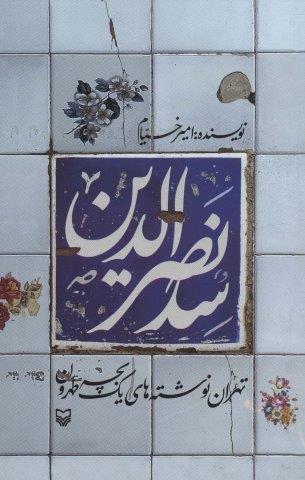 نویسنده: امیر خیام
سد نصرالدین
تهران نوشته‌های یک بچه طهرون